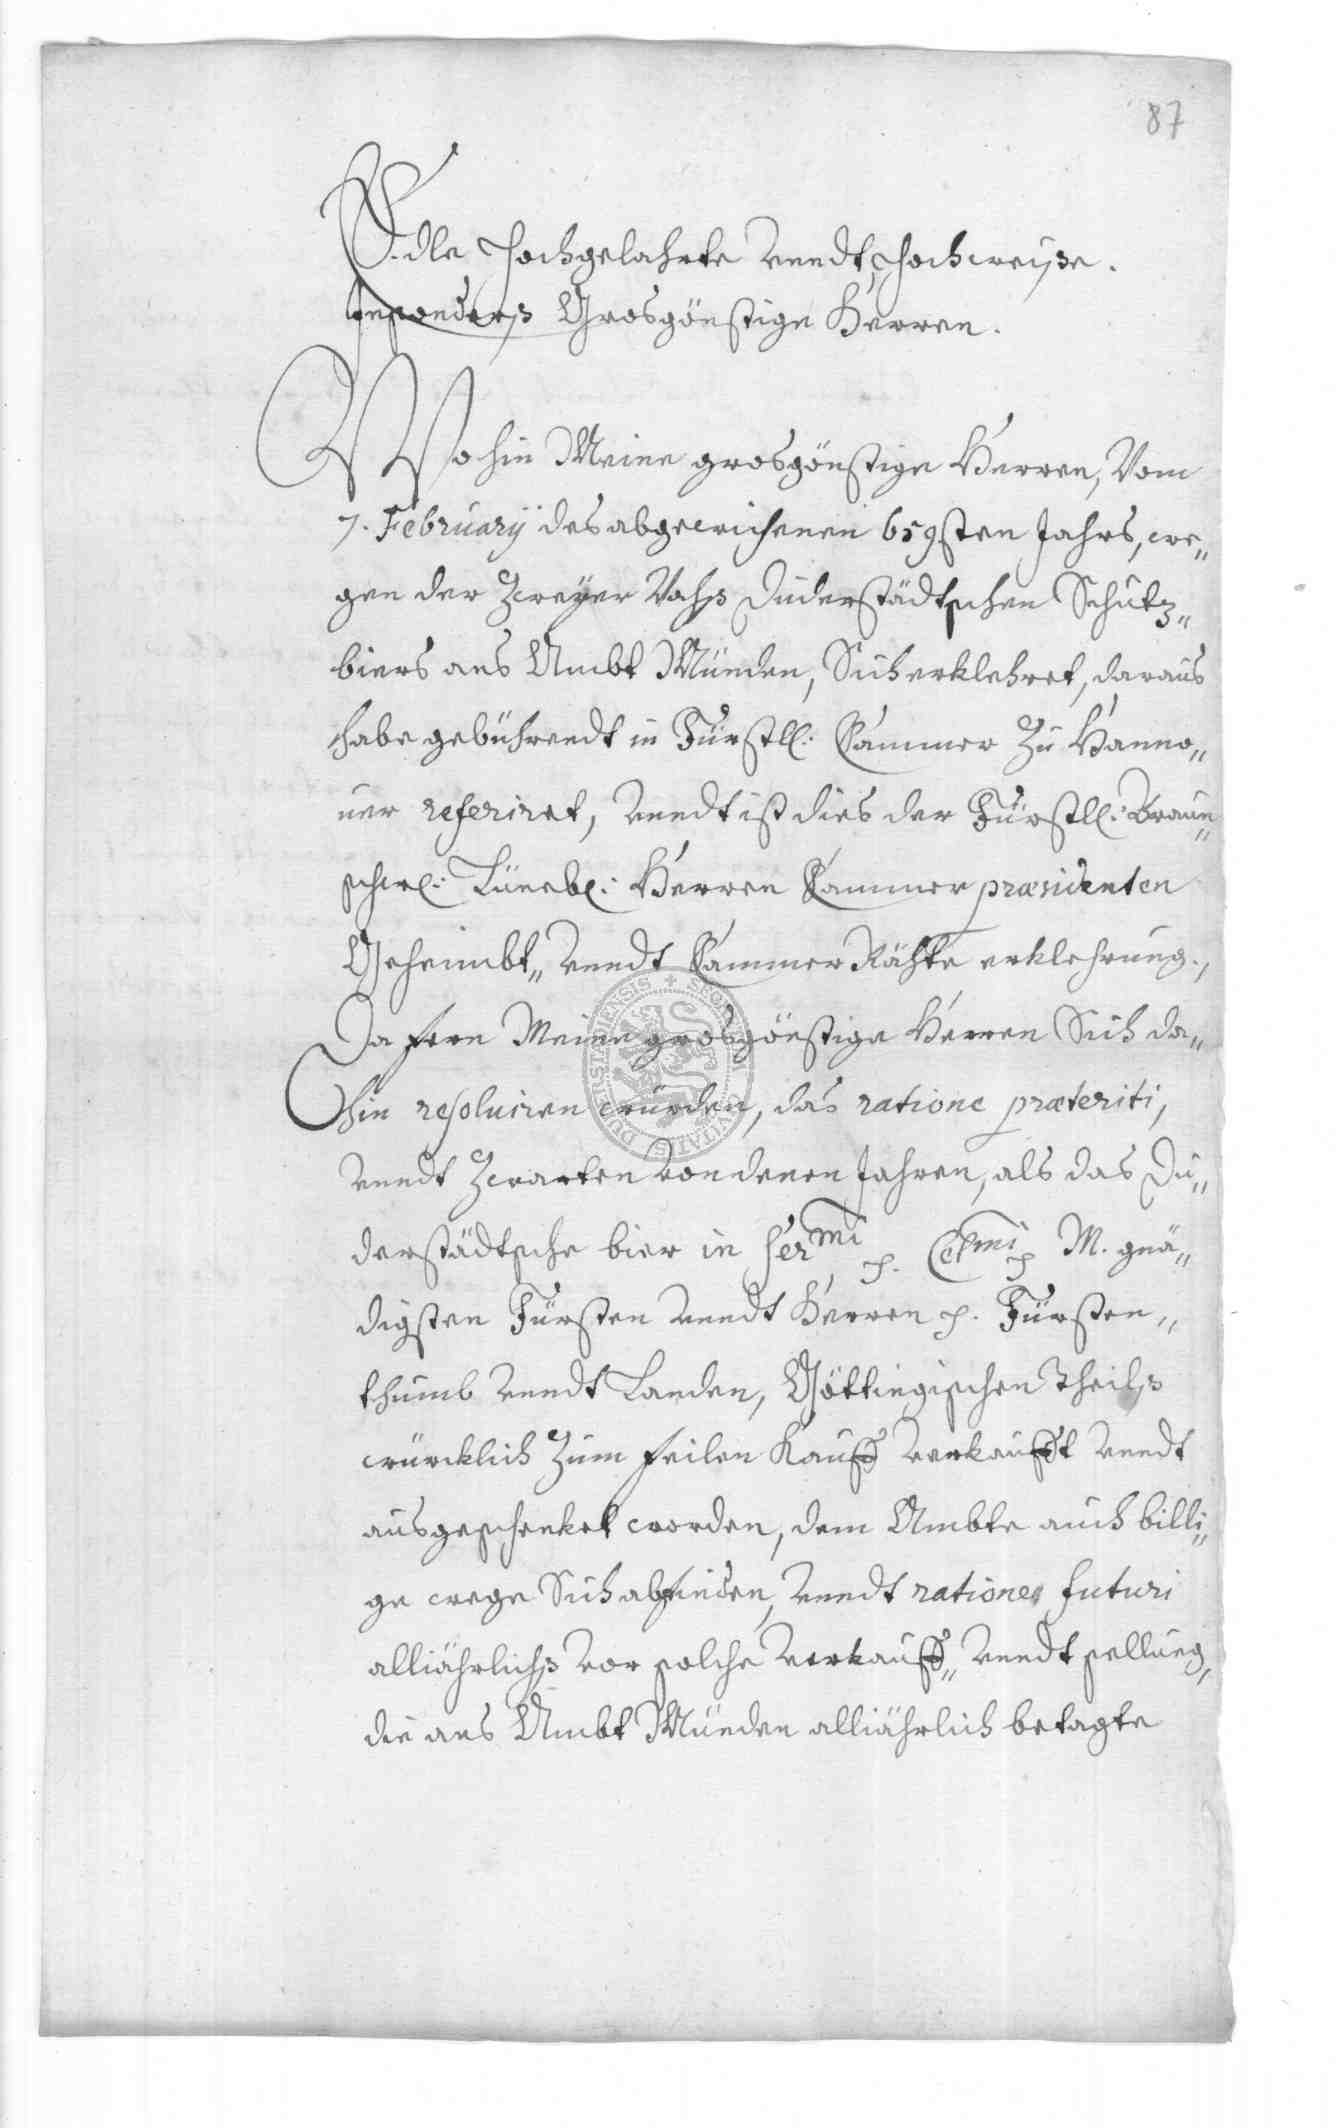 87
Edle Hochgelahrte vnndt Hochweyße.
Insonderß Grosgönstige Herren.
Wohin Meine grosgönstige Herren, Vom
7. February des abgewichenen 659sten Jahrs, we„
gen der Zweyer Vahß Duderstädtschen Schutz„
biers ans Ambt Münden, Sich erklehret, daraus
habe gebührendt in Fürstl: Cammer Zu Hanno„
uer referiret, vnndt ist dies der Fürstl: Braun„
schw: Lüneb: Herren Cammer præsidenten
Geheimbt„ vnndt Cammer Rähte erklehrung,
Dafern Meine grosgönstige Herren Sich da„
hin resoluiren würden, das ratione præteriti,
vnndt Zwarten von denen Jahren, als das Du„
derstädtsche bier in Ser.mi p. Cel.mi p M. gnä„
digsten Fürsten vnndt Herren p. Fürsten„
thumb vnndt Landen, Göttingischen Theilß
würcklich Zum feilen Kauff verkaufft vnndt
ausgeschenket worden, dem Ambte auch billi„
ge wege Sich abfinden, vnndt ratione futuri
alliährlichß vor solche verkauff„ vnndt sellung,
die ans Ambt Münden alliährlich betagte
SIGILLUM CIVITATIS DUDERSTADIENSIS